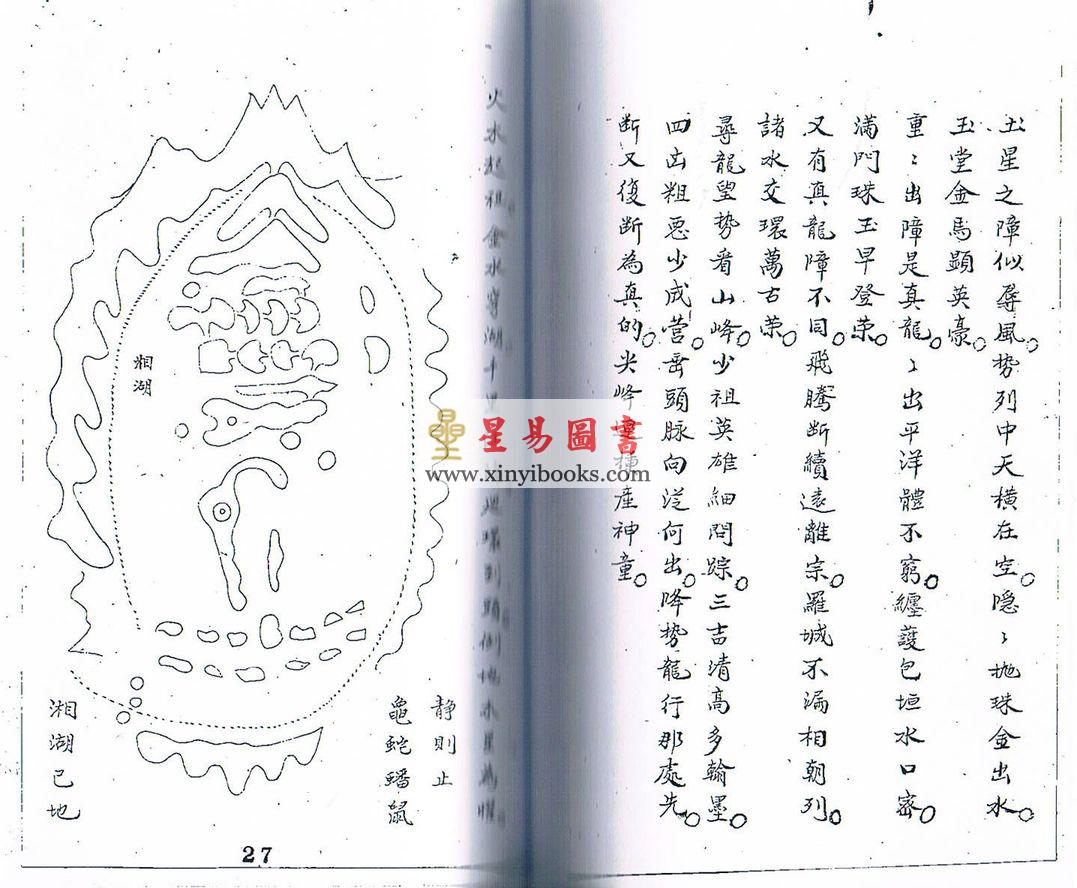 土星之障似屏風。势列中天橫在空。隐〻拋珠金出水。
玉堂金馬顕英豪。
重〻出障是真龍。〻出平洋體不窮。纏護包垣水口密。
滿門珠玉早登荣。
又有真龍障不同。飛騰断續遠離宗。羅城不漏相朝列。
諸水交環萬古荣。
尋龍望势看山峰。少祖英雄細問踪。三吉清高多翰墨。
四凶粗惡少成营。岳頭脉向從何出。降势龍行那處先。
断又復断為真的。尖峰 産神童。
火木起祖金水穿湖千
静則止
龜蛇蟠鼠
湘湖
湘湖巳地
27
星易圖書
www.xinyibooks.com